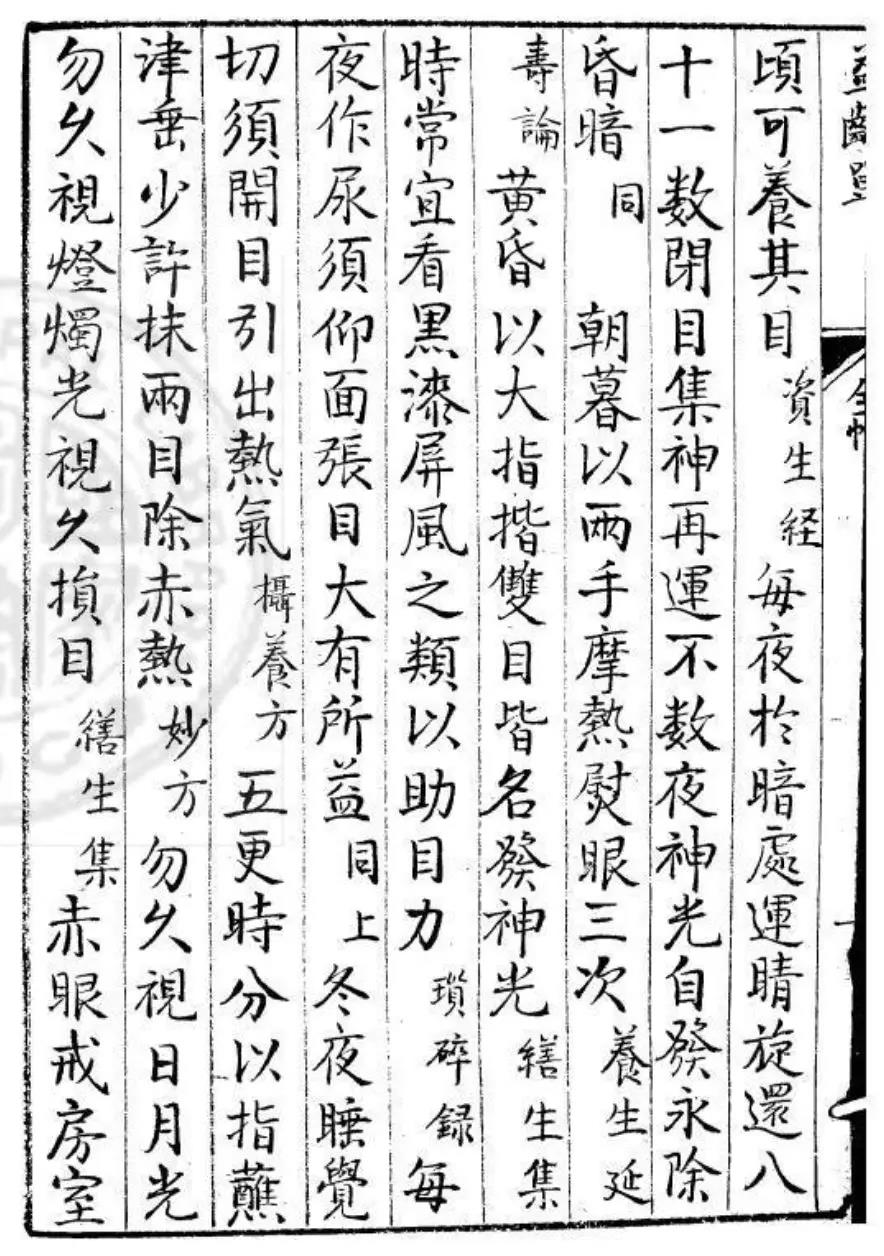 頃可養其目資生経每夜於暗處運睛旋還八
十一数閉目集神再運不数夜神光自發永除
昏暗同 朝暮以兩手摩熱熨眼三次養生延
壽論黄昏以大指揩雙目皆名發神光繕生集
時常宜看黒漆屏風之類以助目力瑣碎録每
夜作尿須仰面張目大有所益同上冬夜睡覺
切須開目引出熱氣攝養方五更時分以指蘸
津唾少許抹兩目除赤熱妙方勿久視日月光
勿久視燈燭光視久損目繕生集赤眼戒房室